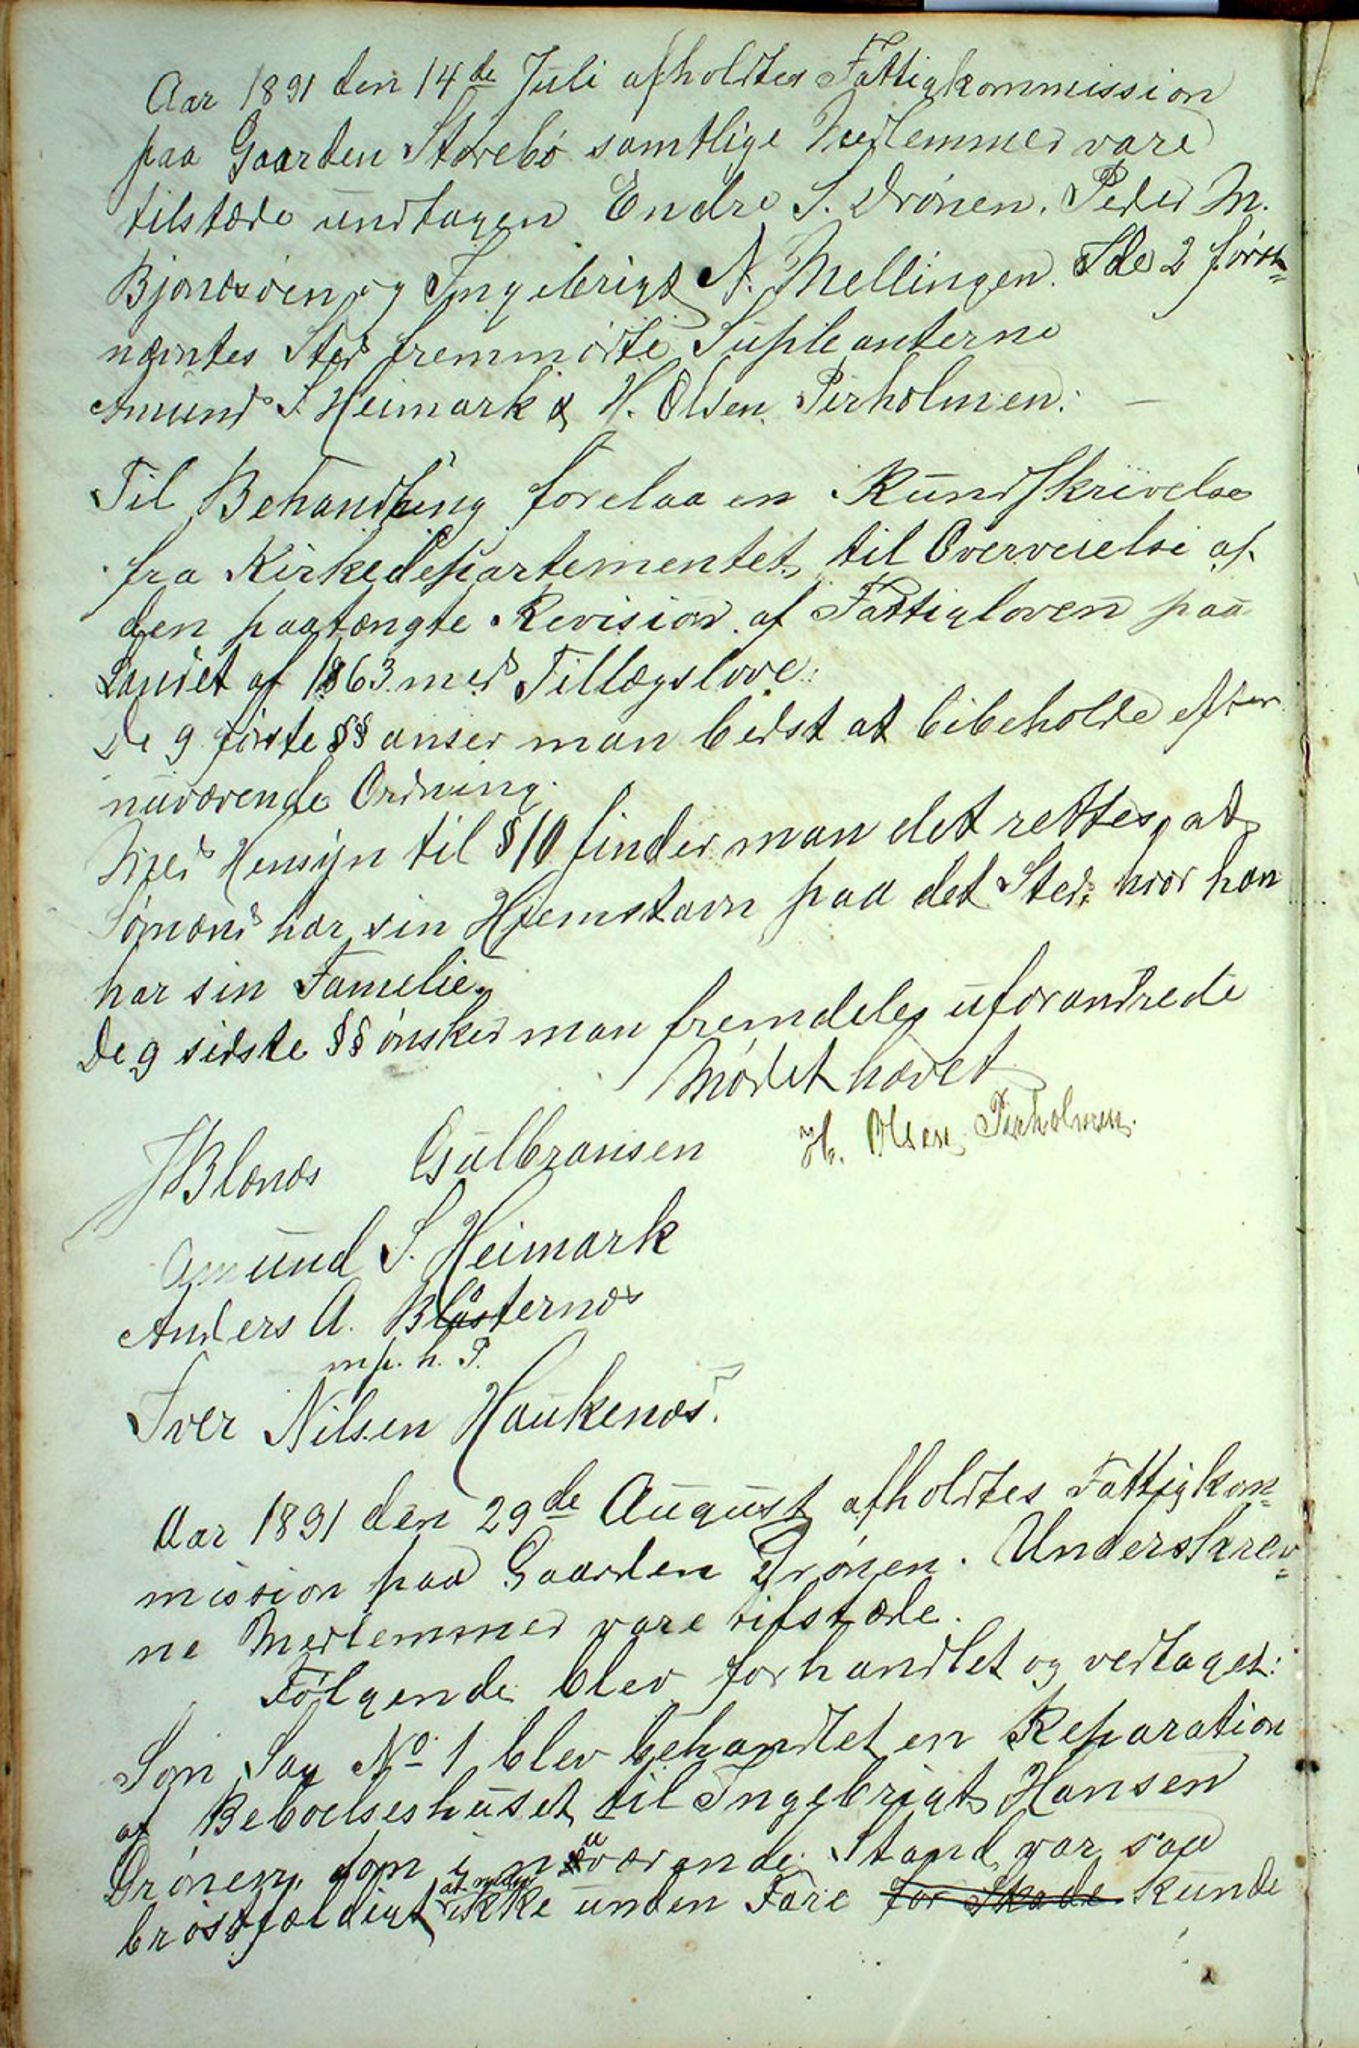 Aar 1891 den 14de Juli afholdtes Fattigkommission
paa Gaarden Storebø samtlige Medlemmer vare
tilstæde undtagen Endre S. Drønen, Peder M.
Bjonæsøen og Ingebrigt N. Mellingen. I de 2 først=
nævntes Sted fremmødte Supleanterne
Amund S. Heimark & H. Olsen Pirholmen: —
Til Behandling forelaa en Rundskrivelse
fra Kirkedepartementet, til Overveielse af
den paatængte Revision af Fattigloven paa
Landet af 1863 med Tillægslove:
De 9 første §§ anser man bedst at bibeholde efter
nuværende Ordning.
Med Hensyn til § 10 finder man det rettest, at
Sømænd har sin Hjemstavn paa det Sted, hvor han
har sin Familie.
De 9 sidste §§ ønsker man fremdeles uforandrede
Mødet hævet
J Blænæs Gulbransen H. Olsen Pirholmen.
Amund S. Heimark
Anders A. Blåsternæs
m. p. h. P.
Iver Nilsen Haukenæs.
Aar 1891 den 29de August afholdtes Fattigkom=
mission paa Gaarden Drønen. Underskrev=
ne Medlemmer vare tilstæde.
Følgende blev forhandlet og vedtaget:
Som Sag No 1 blev behandlet en Reparation
af Beboelseshuset til Ingebrigt Hansen
Drønen, som i nuværende Stand var saa
brøstfældigt at ikke uden Fare for Skade kunde